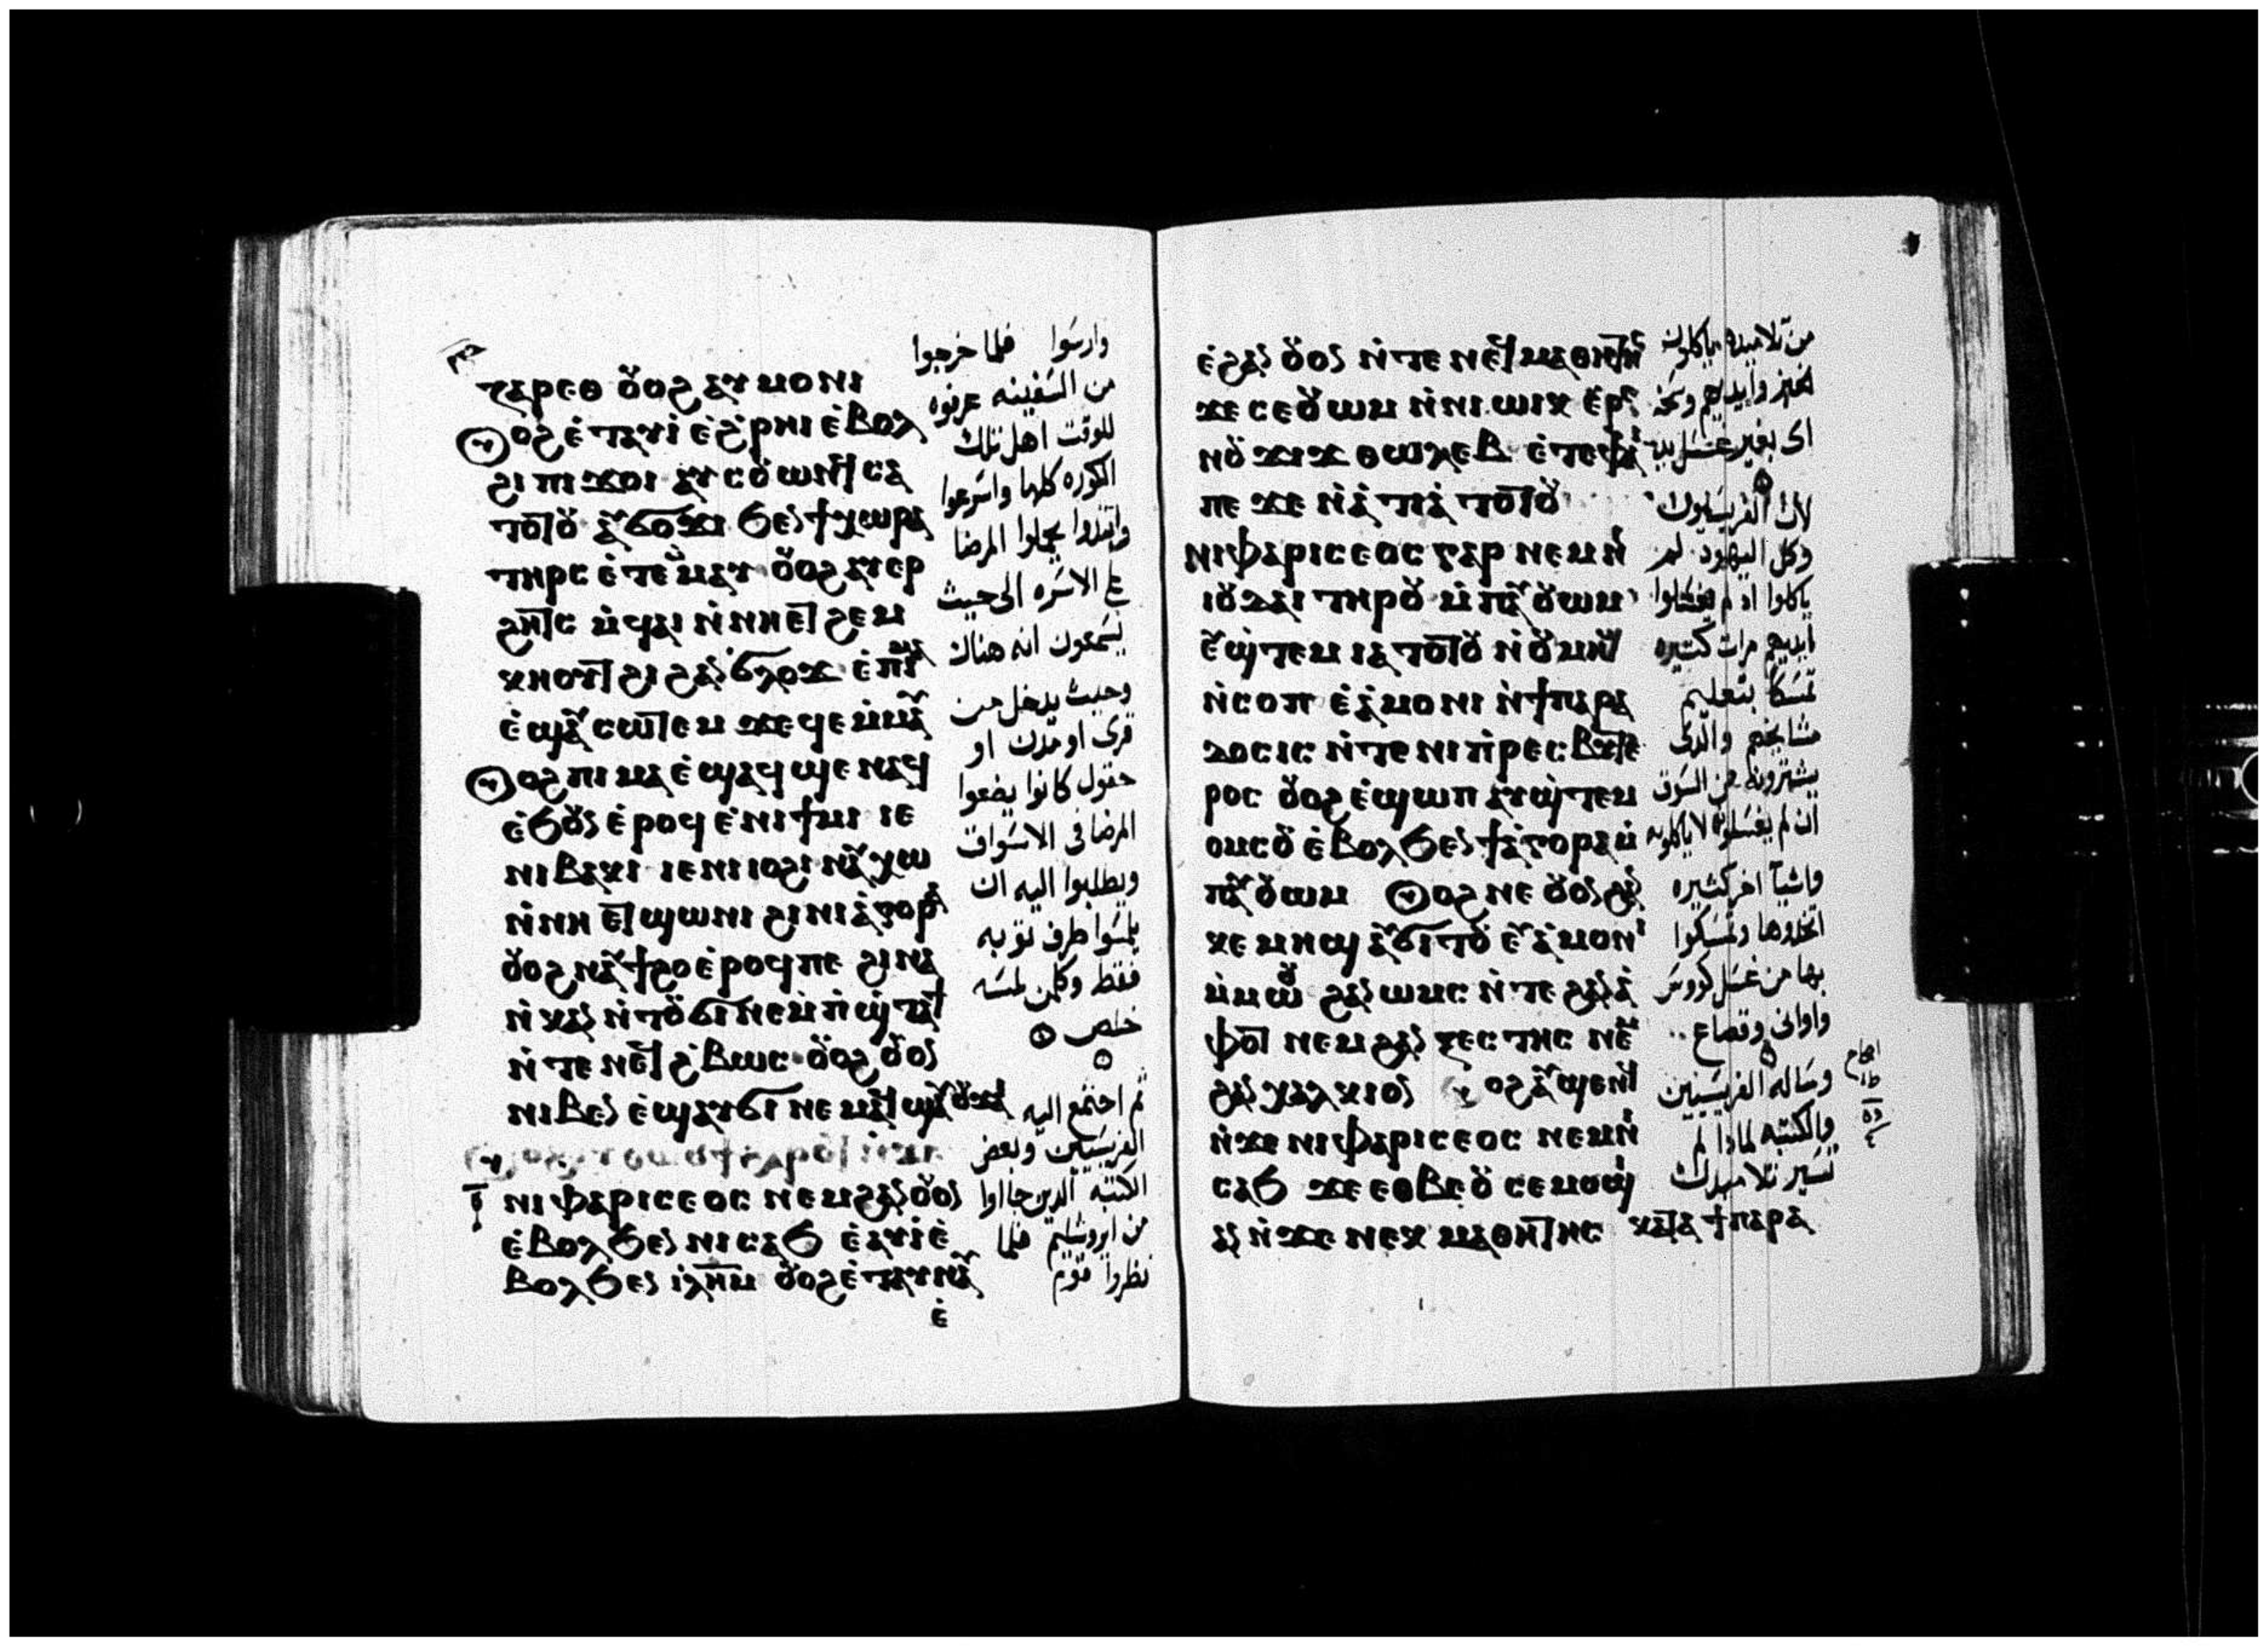 ⲅⲁⲣⲉⲑ ⲟⲩⲟϩ ⲁⲩⲙⲟⲛⲓ
ⲟϩ ⲉⲧⲁⲩⲓ ⲉϩⲣⲏⲓ ⲉⲃⲟⲗ
ϩⲓ ⲡⲓϫⲟⲓ ⲁⲩⲥⲟⲩⲱⲛϥ ⲥⲁ
ⲧⲟⲧⲟⲩ ⲁⲩϭⲟϫⲓ ϧⲉⲛ ϯⲭⲱⲣⲁ
ⲧⲏⲣⲥ ⲉⲧⲉⲙⲙⲁⲩ ⲟⲩⲟϩ ⲁⲩⲉⲣ
ϩⲏⲧⲥ ⲛϥⲁⲓ ⲛⲛⲏⲉⲧϩⲉⲙ
ⲕⲏⲟⲩⲧ ϩⲓ ϩⲁⲛϭⲗⲟϫ ⲉⲡⲓⲙⲁ
ⲉϣⲁⲩⲥⲱⲧⲉⲙ ϫⲉ ϥⲉⲙⲙⲁⲩ
ⲟϩ ⲡⲓⲙⲁ ⲉϣⲁϥϣⲉ ⲛⲁϥ
ⲉϧⲟⲩⲛ ⲉⲣⲟϥ ⲉⲛⲓϯⲙⲓ ⲓⲉ
ⲛⲓⲃⲁⲕⲓ ⲓⲉ ⲛⲓⲓⲟϩⲓ ⲛⲁⲩⲭⲱ
ⲛⲛⲏⲉⲧϣⲱⲛⲓ ϩⲓ ⲛⲓⲁⲅⲟⲣⲁ
ⲟⲩⲟϩ ⲛⲁⲩϯϩⲟ ⲉⲣⲟϥ ⲡⲉ ϩⲓⲛⲁ
ⲛⲕⲁⲛ ⲛⲧⲟⲩϭⲓ ⲛⲉⲙ ⲡϣⲧⲁϯ
ⲛⲧⲉ ⲛⲉϥϩⲃⲱⲥ ⲟⲩⲟϩ ⲟⲩⲟⲛ
ⲛⲓⲃⲉⲛ ⲉϣⲁⲩϭⲓ ⲛⲉⲙⲁϥ ϣⲁⲩⲟⲩϫⲁⲓ
ⲛⲓⲫⲁⲣⲓⲥⲉⲟⲥ ⲛⲉⲙ ϩⲁⲛⲟⲩⲟⲛ
ⲉⲃⲟⲗ ϧⲉⲛ ⲛⲓⲥⲁϧ ⲉⲁⲩⲓ ⲉ
ⲃⲟⲗ ϧⲉⲛ ⲓⲗⲏⲙ ⲟⲩⲟϩ ⲉⲧⲁⲩⲛⲁⲩ
ⲉ
وارسوا فلما خرجوا
من السفينه عرفوه
للوقت اهل تلك
الكوره كلها واسرعوا
وابتدوا يحملوا المرضا
على الاسره الى حيث
يسمعون انه هناك
وحيث يدخل من
قرى او مدن او
حقول كانوا يضعوا
المرضا فى الاسواق
ويطلبوا اليه ان
يلمسوا طرف ثوبه
فقط وكلمن لمسه
خلص
ثم اجتمع اليه
الفريسيين وبعض
الكتبه الذين جااوا
من ايروشليم فلما
نظروا قوم
ⲉϩⲁⲛⲟⲩⲟⲛ ⲛⲧⲉ ⲛⲉϥⲙⲁⲑⲏⲧⲏⲥ
ϫⲉ ⲥⲉⲟⲩⲱⲙ ⲛⲛⲓⲱⲓⲕ ⲉⲣⲉ
ⲛⲟⲩϫⲓϫ ⲑⲱⲗⲉⲃ ⲉⲧⲉ ⲫⲁⲓ
ⲡⲉ ϫⲉ ⲛⲁⲧⲓⲁ ⲧⲟⲧⲟⲩ
ⲛⲓⲫⲁⲣⲓⲥⲉⲟⲥ ⲅⲁⲣ ⲛⲉⲙ ⲛⲓ
ⲓⲟⲩⲇⲁⲓ ⲧⲏⲣⲟⲩ ⲙⲡⲁⲩⲟⲩⲱⲙ
ⲁⲩϣⲧⲉⲙ ⲓⲁ ⲧⲟⲧⲟⲩ ⲛⲟⲩⲙⲏϣ
ⲛⲥⲟⲡ ⲉⲁⲙⲟⲛⲓ ⲛϯⲡⲁⲣⲁ
ⲇⲟⲥⲓⲥ ⲛⲧⲉ ⲛⲓⲡⲣⲉⲥⲃⲩⲧⲉ
ⲣⲟⲥ ⲟⲩⲟϩ ⲉϣⲱⲡ ⲁⲩϣⲧⲉⲙ
ⲟⲙⲥⲟⲩ ⲉⲃⲟⲗ ϧⲉⲛ ϯⲁⲅⲟⲣⲁ ⲙ
ⲡⲁⲩⲟⲩⲱⲙ ⲟϩ ⲛⲉ ⲟⲩⲟⲛ ϩⲁⲛ
ⲕⲉⲙⲏϣ ⲁⲩϭⲓⲧⲟⲩ ⲉⲩⲁⲙⲟⲛⲓ
ⲙⲙⲱⲟⲩ ϩⲁⲛⲱⲙⲥ ⲛⲧⲉ ϩⲁⲛⲁ
ⲫⲟⲧ ⲛⲉⲙ ϩⲁⲛⲝⲉⲥⲧⲏⲥ ⲛⲉⲙ
ϩⲁⲛⲭⲁⲗⲕⲓⲟⲛ ⲟϩ ⲁⲩϣⲉⲛϥ
ⲛϫⲉ ⲛⲓⲫⲁⲣⲓⲥⲉⲟⲥ ⲛⲉⲙ ⲛⲓ
ⲥⲁϧ ϫⲉ ⲉⲑⲃⲉⲟⲩ ⲥⲉⲙⲟϣⲓ
ⲁⲛ ⲛϫⲉ ⲛⲉⲕⲙⲁⲑⲏⲧⲏⲥ ⲕⲁⲧⲁ ϯⲡⲁⲣⲁ
من تلاميذه ياكلون
الخبز وايديهم وسخه
اى بغير غسل يد
لان الفريسيون
وكل اليهود لم
ياكلوا ان لم يغسلوا
ايديهم مرات كثيره
تمسكا بتعليم
مشايخهم والذى
يشترونه من السوق
ان لم يغسلوه لا ياكلونه
واشيآ اخر كثيره
اتخدوها وتمسكوا
بها من غسل كووس
واوانى وقصاع
وساله الفريسيين
والكتبه لماذا لم
تسير تلاميدك